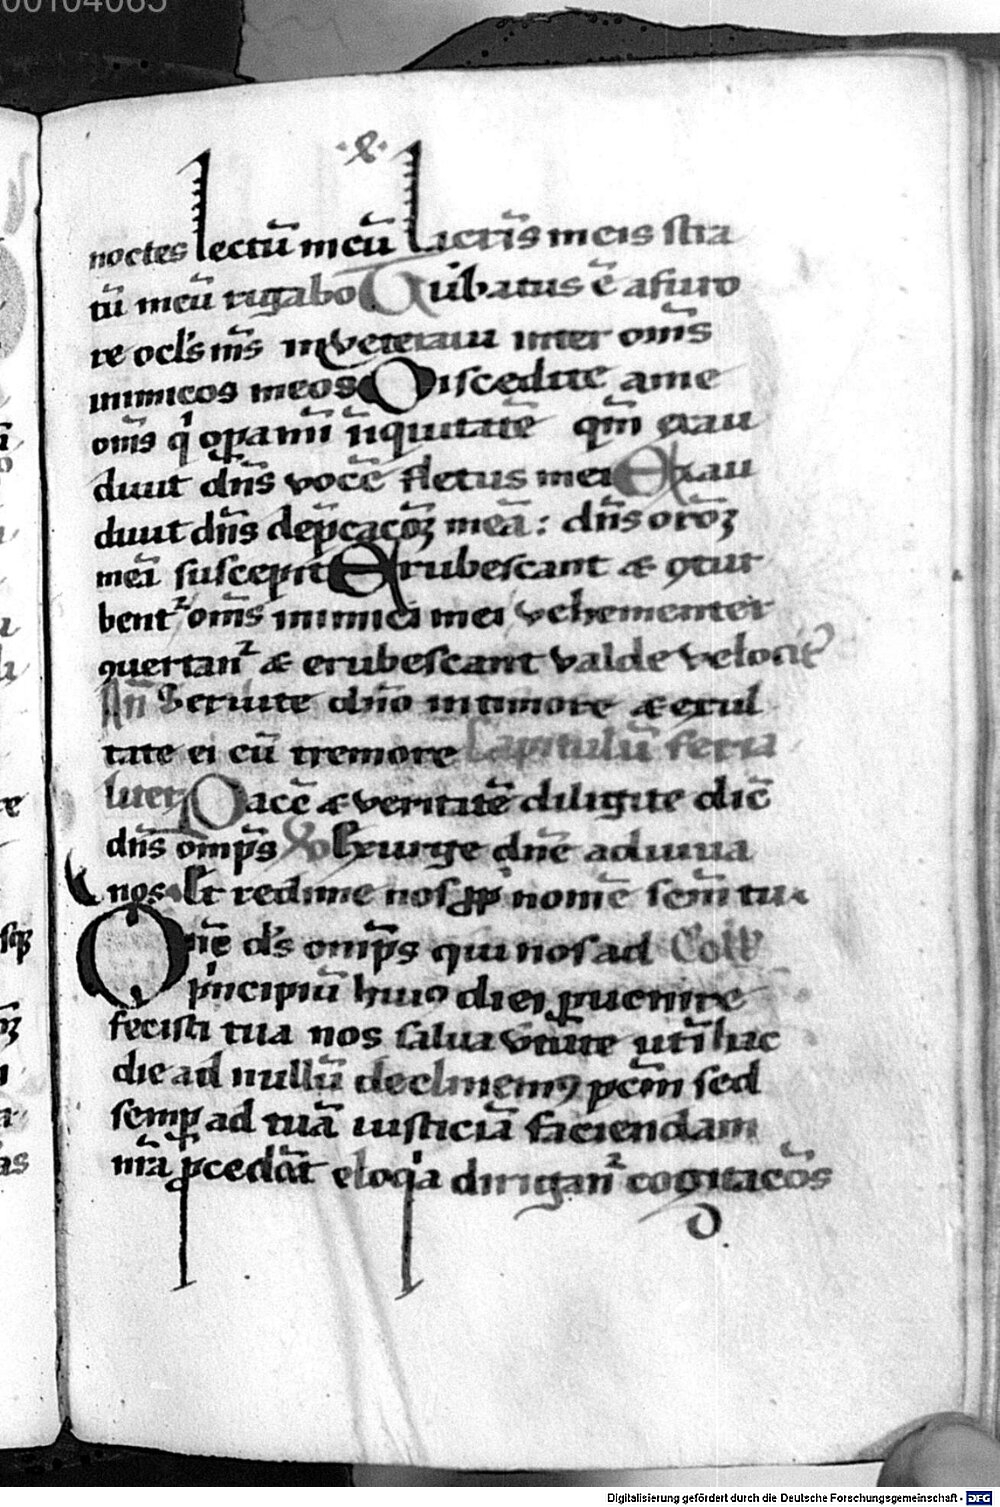 00104065
·x·
noctes lectū meū lacrīs meis stra
tū meū rigabo Turbatus ē a furo
re ocl's m̄s inveteraui inter om̄s
inimicos meos Discedite a me
om̄s q̇ opamī iniquitatē qm̄ exau
diuit dn̄s vocē fletus mei Exau
diuit dn̄s dep̄cacōꝫ meā : dn̄s orōꝫ
meā suscepit Erubescant ⁊ ꝯtur
bent᷑ om̄s inimici mei vehementer
ꝯuertan᷑ ⁊ erubescant valde velocit᷑
An̄ Seruite dn̄o in timore ⁊ exul
tate ei cū tremore Capitulū feria
liter Pacē ⁊ veritatē diligite dic̄
dn̄s omp̄s V Exurge dn̄e adiuua
nos Et redime nos ꝓp̄ nomē
Dn̄e ds̄ omp̄s qui nos ad Coll'
pͥncipiū huiꝰ diei ꝑuenire
fecisti tua nos salua v̄tute ut ī hac
die ad nullū declinemꝰ pc̄m sed
semꝑ ad tuā iusticiā faciendam
nr̄a ꝓcedāt eloqͥa dirigan᷑ cogitacōs
Digitalisierung gefördert durch die Deutsche Forschungsgemeinschaft - DFG